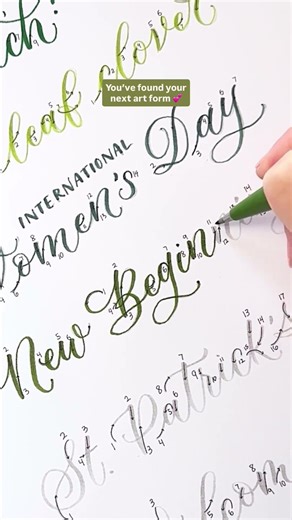 ch!
leaf clover
You've found your
next art form 💕
INTERNATIONAL
Women's Day
New Beginnings
St. Patrick's